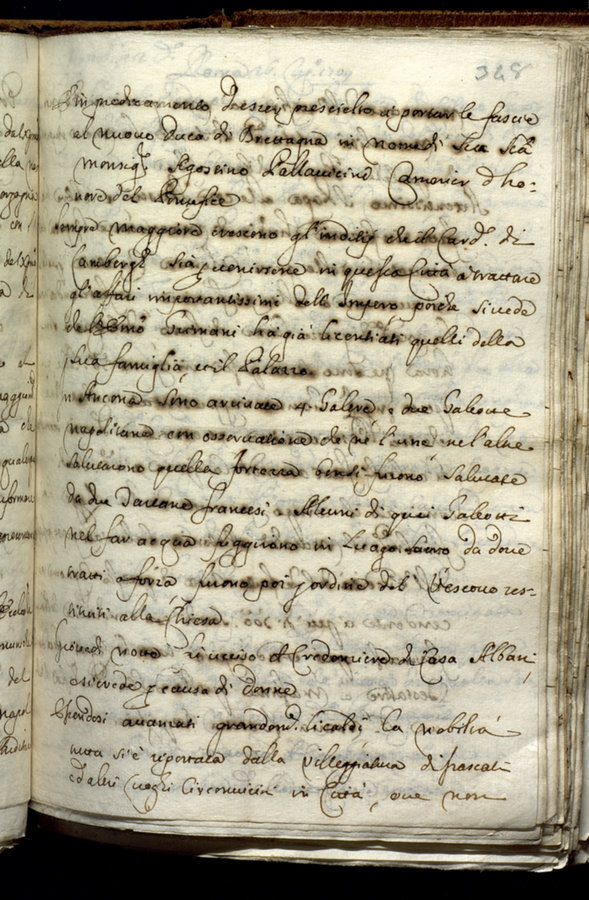 328
medicamento d'esser prescielto a portar le fascie
al nuovo Duca di Brettagna in nome di Sua Stà
Monsigr Agostino Pallavicino Camerier d'ho-
nore del
Sempre maggiori crescono gl'inditij che il Card. di
Lambergh sia per venirsene in questa Città a trattare
gl'affari importantissimi dell'Impero poiche si vede
che l'Emo Grimani ha già licentiati quelli della
sua famiglia, et il Palazzo
In Ancona sono arrivate 4 Galere e due Galeotte
napolitane con osservatione che nè l'une, nè l'altre
salutarono quella fortezza bensì furono salutate
da due Tartane francesi. Alcuni di quei Galeotti
nel far acqua fuggirono in luogo sacro da dove
tratti a forza furono poi per ordine del Vescovo res-
tituiti alla Chiesa.
Giovedì notte fù ucciso il Credenziere di Casa Albani
e si crede per causa di donne
Essendosi avanzati grandemte li caldi la nobiltà
tutta si è riportata dalla Villeggiatura di frascati
ed altri luoghi Circonvicini in Città, ove non